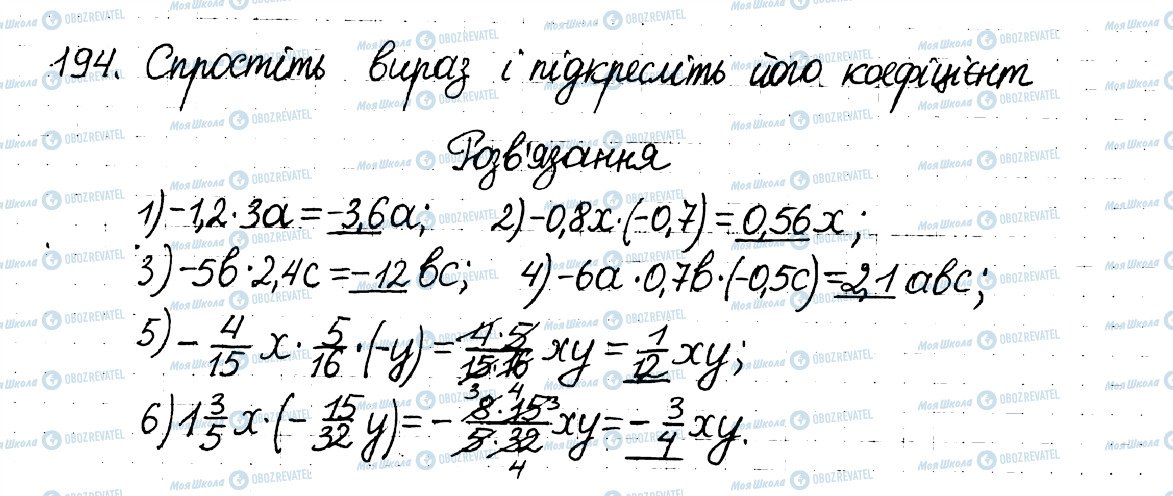 194. Спростіть вираз і підкресліть його коефіцієнт
Розв'язання
1) -1,2·3a = -3,6a;   2) -0,8x·(-0,7) = 0,56x;
3) -5b·2,4c = -12bc;   4) -6a·0,7b·(-0,5c) = 2,1abc;
5) - 4/15 x · 5/16 · (-y) = 4·5/15·16 xy = 1/12 xy;
6) 1 3/5 x · (- 15/32 y) = - 8·15/5·32 xy = - 3/4 xy.